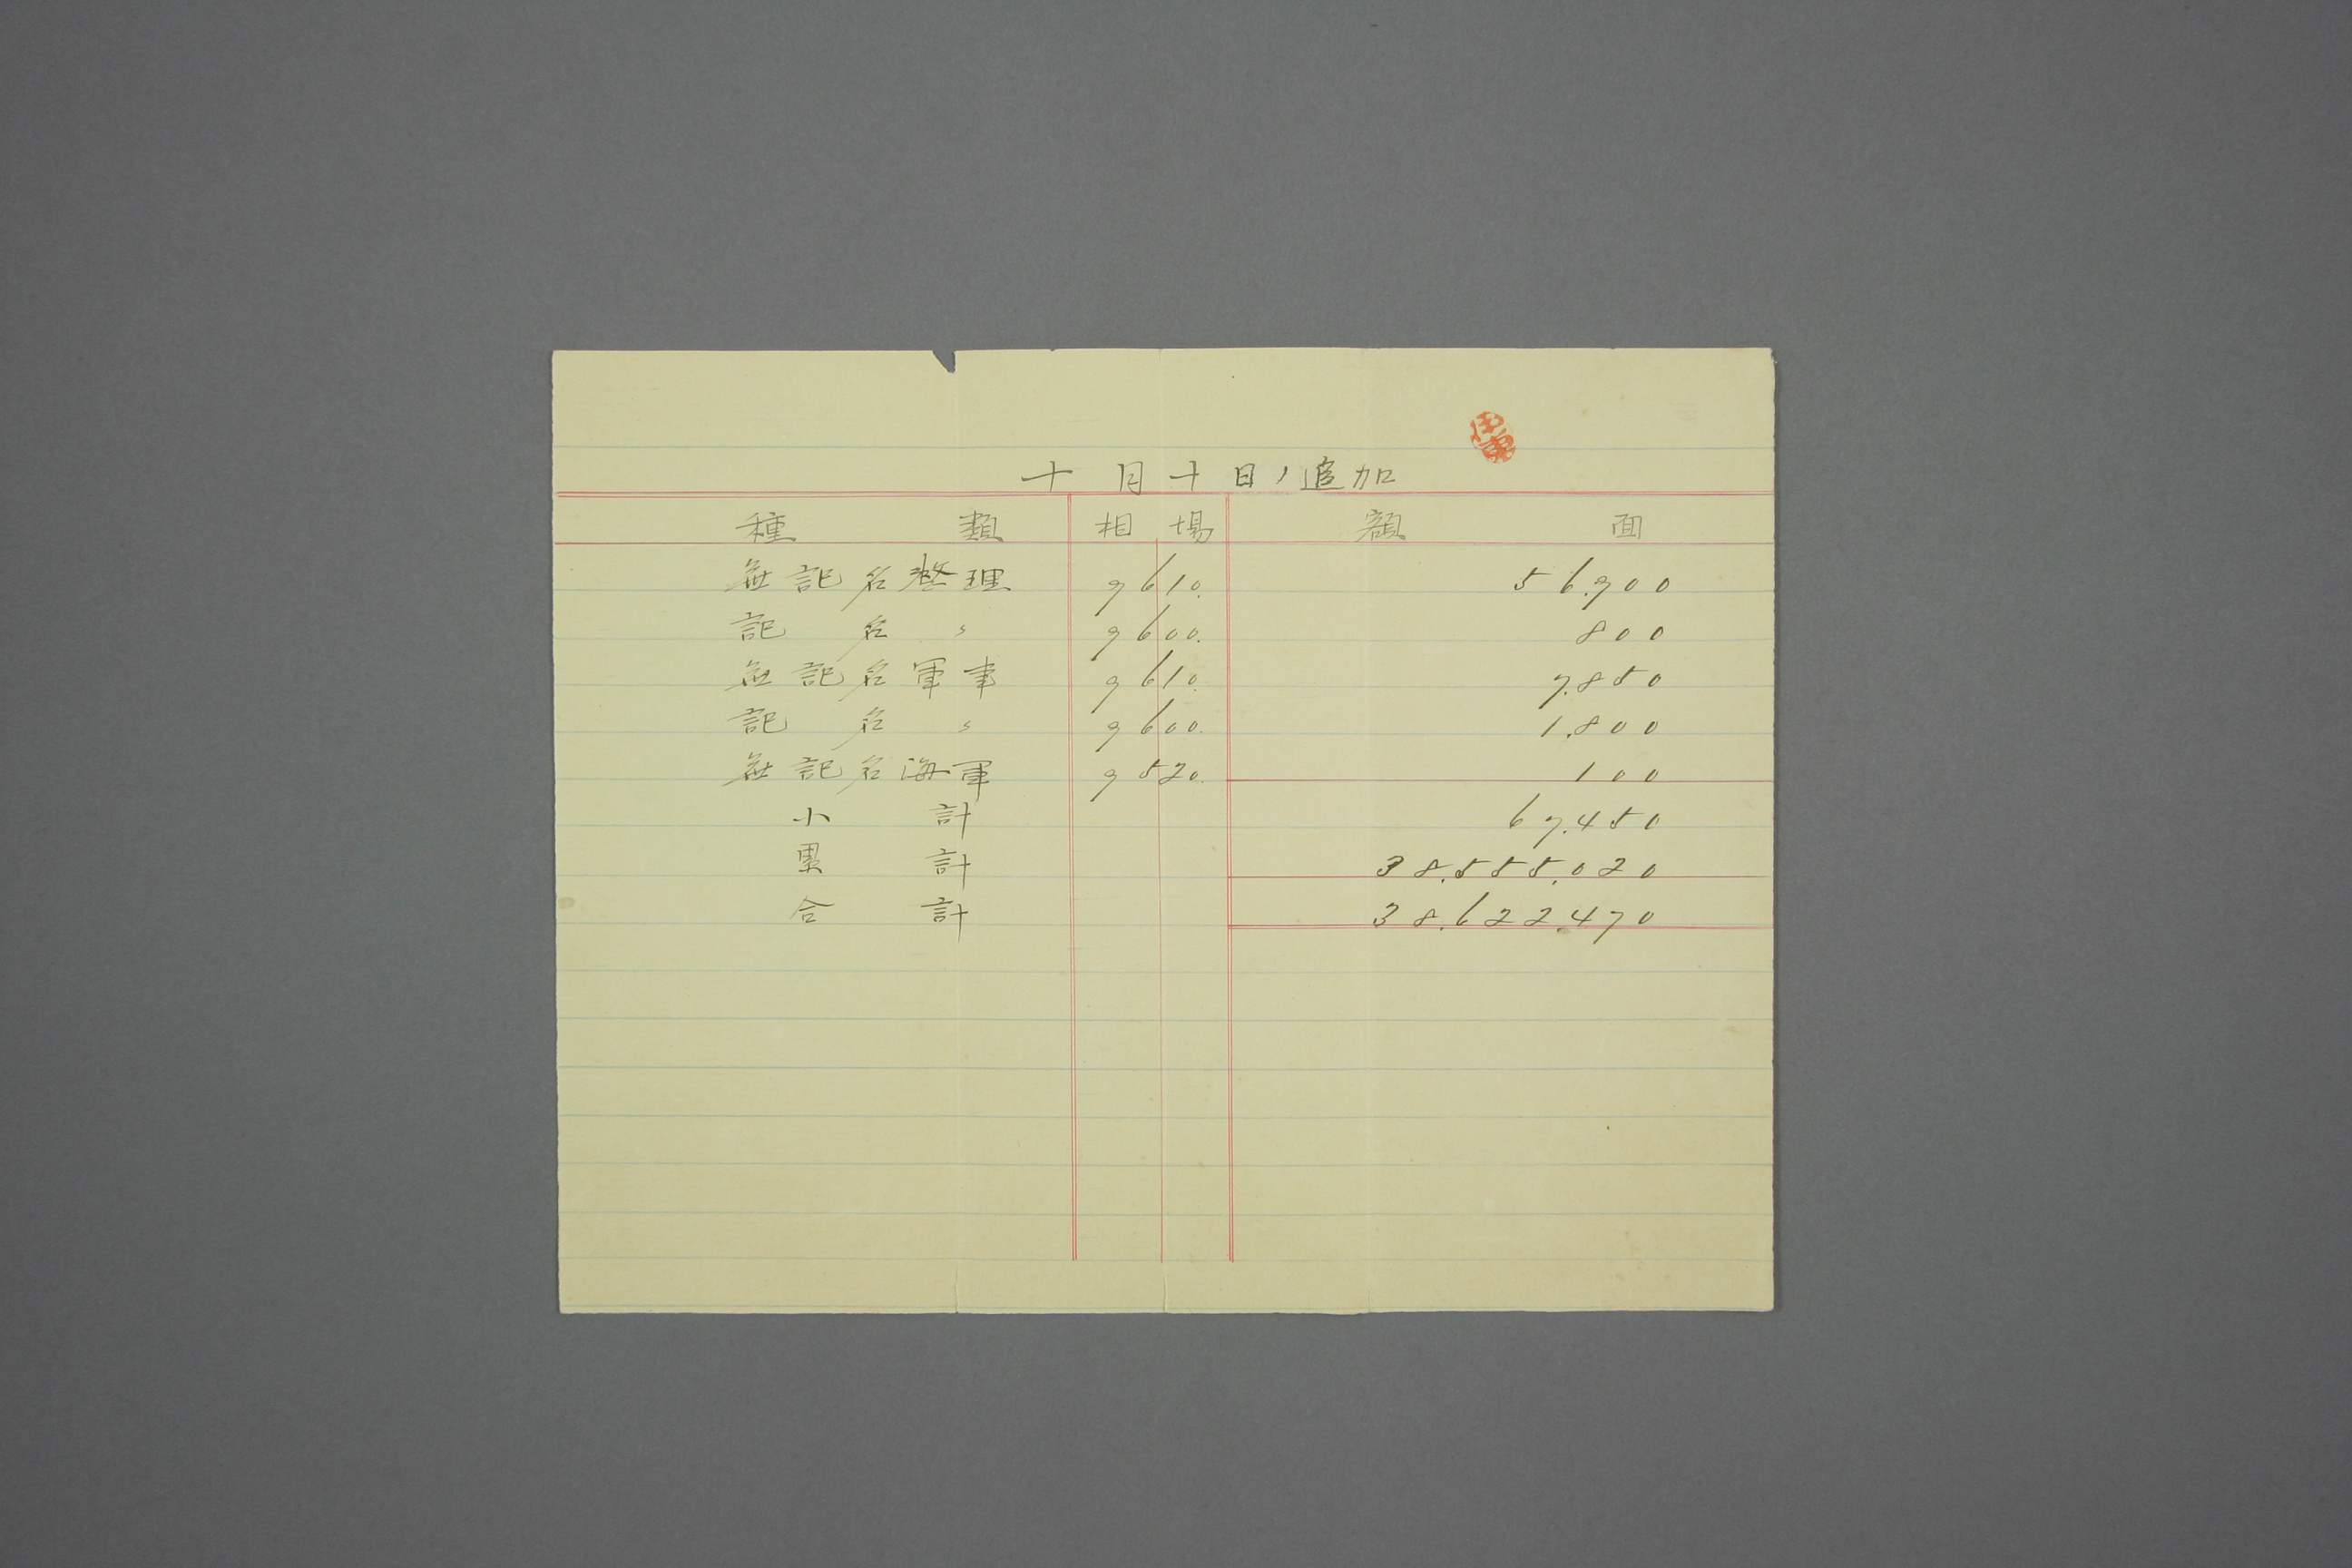 十月十日ノ追加
種類 相場 額面
無記名整理 96 10. 56.900
記名〃 96 00. 800
無記名軍事 96 10. 7.850
記名〃 96 00. 1.800
無記名海軍 95 20. 100
小計 67.450
累計 38.555.020
合計 38.622.470